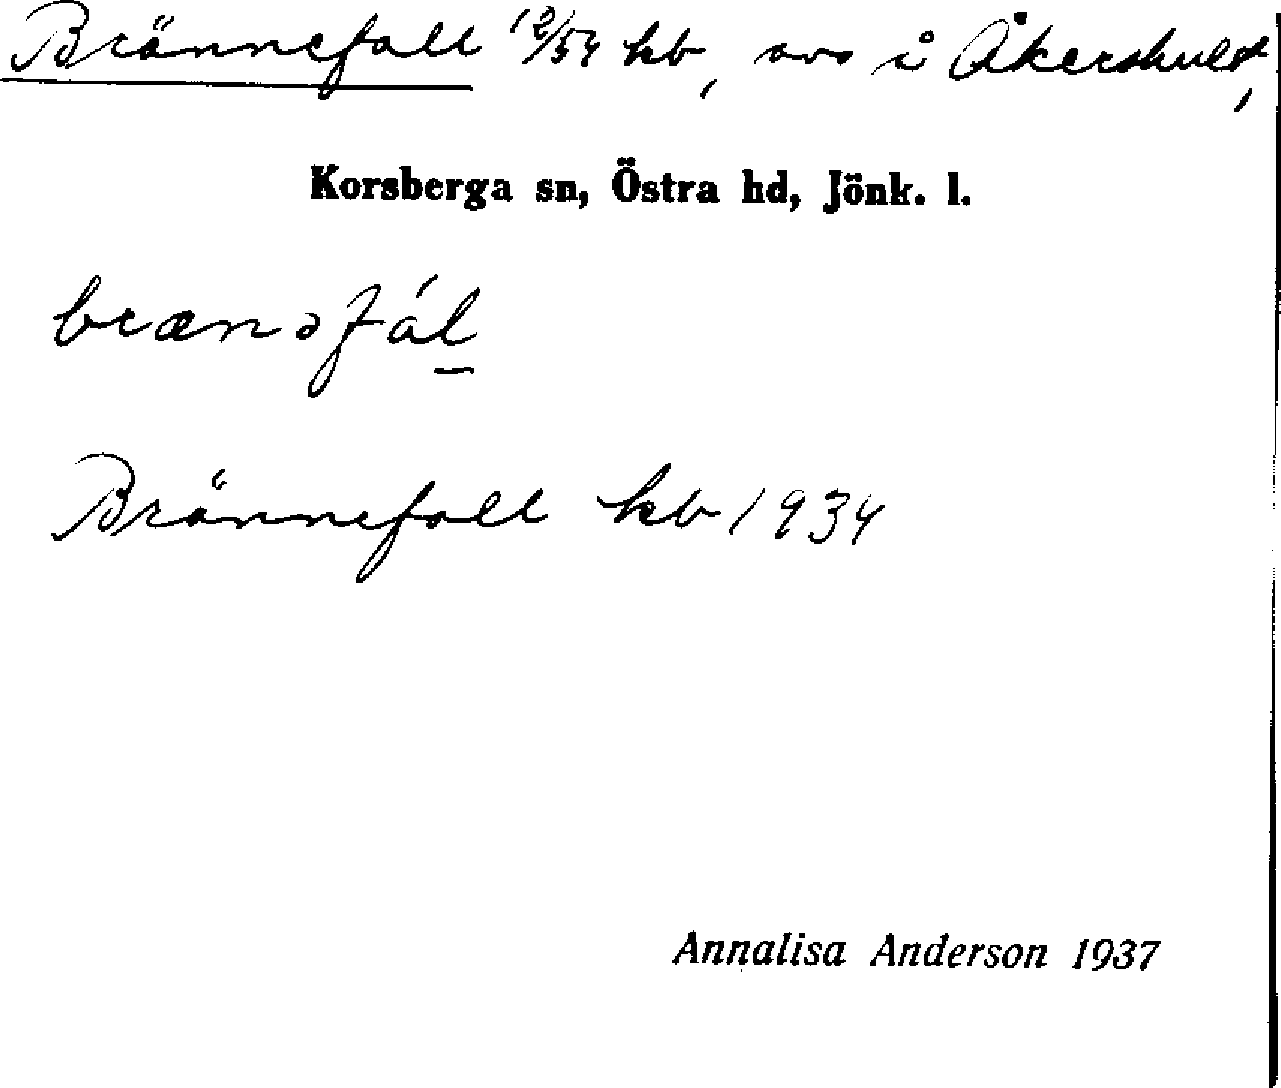 Brännefall 12/54 kb, avs i Åkershult,
Korsberga sn, Östra hd, Jönk. l.
brænəfál
Brännefall kb 1934
Annalisa Anderson 1937